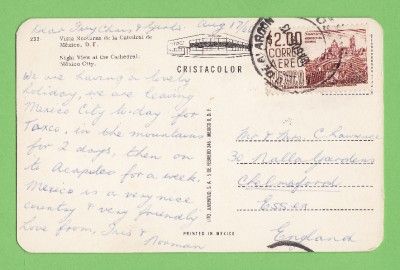 Dear Troy Chris & Girls Aug 17/
232 Vista Nocturna de la Catedral de
México, D. F.
Night View of the Cathedral.
México City.
CRISTACOLOR
We are having a lovely
holiday, we are leaving
Mexico City to-day for
Taxco, in the mountains
for 2 days, then on
to Acapulco for a week.
Mexico is a very nice
country & very friendly
Love from, Iris &
Norman
MEXICO D. F.
$2.00
CORREO
AEREO
Mr & Mrs. C Lawrence
30 Nalla Gardens
Chelmsford
Essex
England
PRINTED IN MEXICO